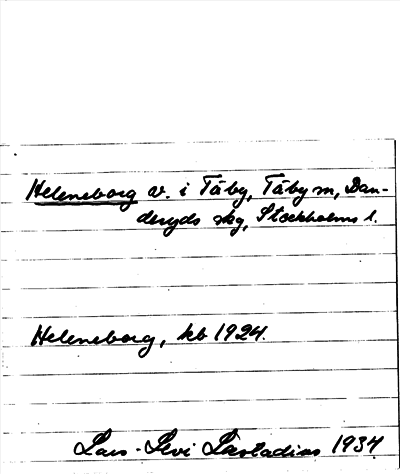 Heleneborg v. i Täby, Täby sn, Dan-
deryds skg, Stockholms l.
Heleneborg, kb 1924.
Lars-Levi Læstadius 1934